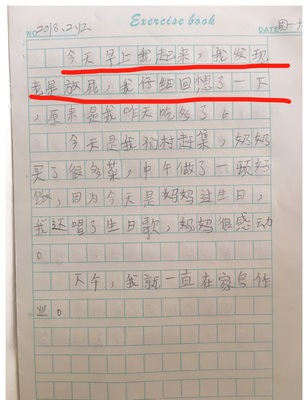 Exercise book
NO. 2018.2.12.
DATE 周一
今天早上我起来,我发现
老是放屁,我仔细回想了一下
,原来是我昨天吃多了。
今天是我们村赶集,奶奶
买了很多菜,中午做了一顿好
饭,因为今天是妈妈过生日,
我还唱了生日歌,妈妈很感动
。
下午,我就一直在家写作
业。